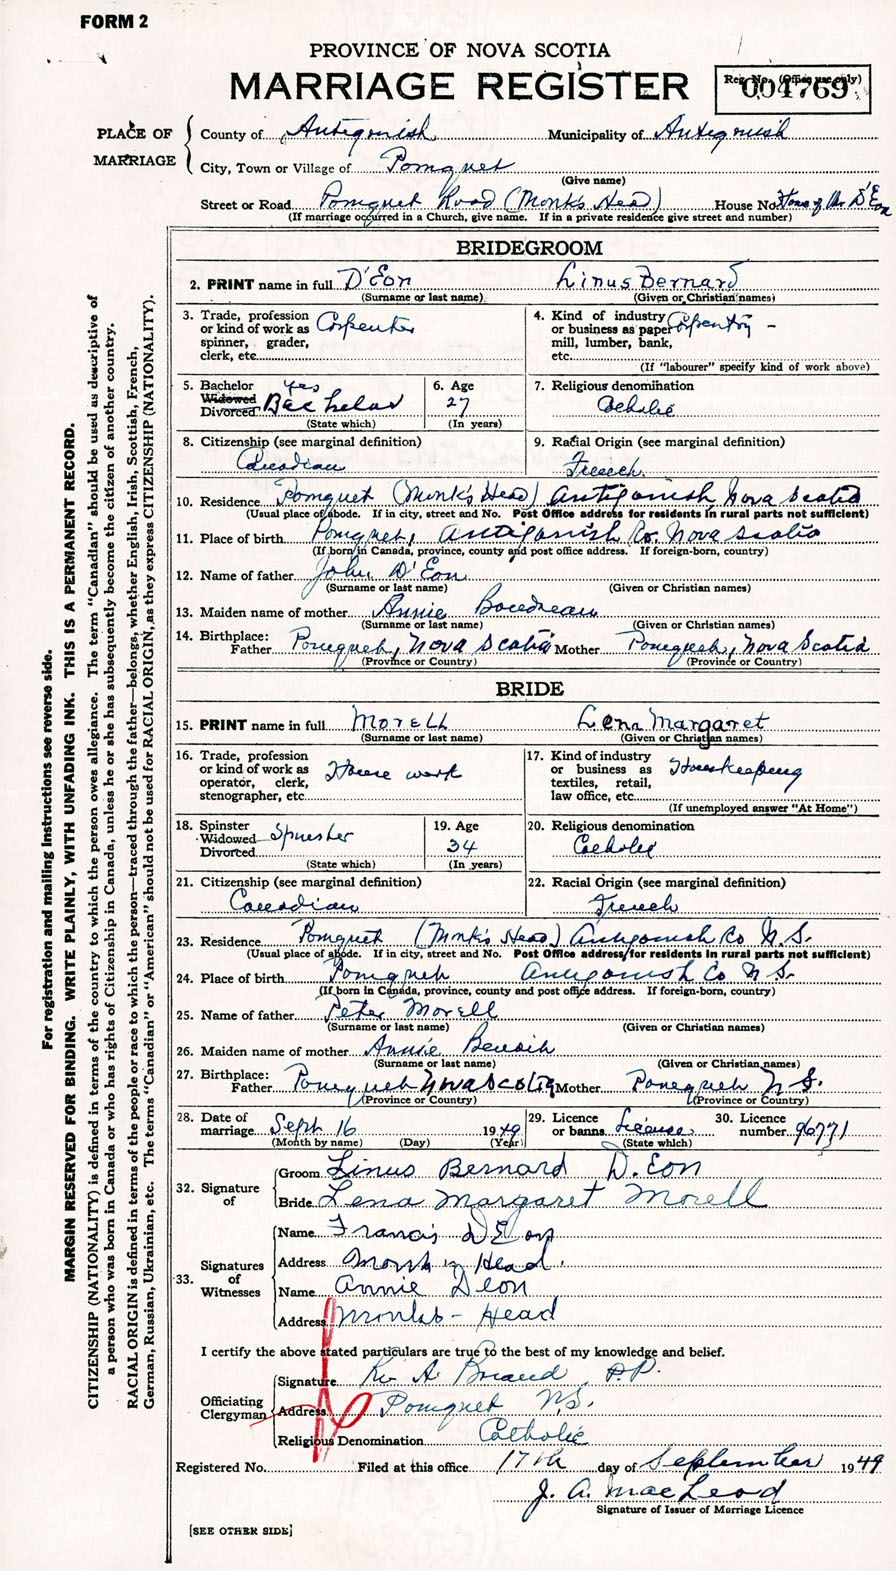 FORM 2
PROVINCE OF NOVA SCOTIA
MARRIAGE REGISTER
Reg. No. (Office use only)
004769
PLACE OF MARRIAGE
County of Antigonish Municipality of Antigonish
City, Town or Village of Pomquet
(Give name)
Street or Road Pomquet Road (Monk's Head) House No. Home of Mr D'Eon
(If marriage occurred in a Church, give name. If in a private residence give street and number)
BRIDEGROOM
2. PRINT name in full D'Eon Linus Bernard
(Surname or last name) (Given or Christian names)
3. Trade, profession or kind of work as spinner, grader, clerk, etc. Carpenter
4. Kind of industry or business as paper mill, lumber, bank, etc. Carpentry -
(If "labourer" specify kind of work above)
5. Bachelor Widowed Divorced Yes Bachelor
(State which)
6. Age 27
(In years)
7. Religious denomination
Catholic
8. Citizenship (see marginal definition)
Canadian
9. Racial Origin (see marginal definition)
French
10. Residence Pomquet (Monk's Head) Antigonish Nova Scotia
(Usual place of abode. If in city, street and No. Post Office address for residents in rural parts not sufficient)
11. Place of birth Pomquet, Antigonish Co. Nova Scotia
(If born in Canada, province, county and post office address. If foreign-born, country)
12. Name of father John D'Eon
(Surname or last name) (Given or Christian names)
13. Maiden name of mother Annie
(Surname or last name) (Given or Christian names)
14. Birthplace:
Father Pomquet, Nova Scotia Mother Pomquet, Nova Scotia
(Province or Country) (Province or Country)
BRIDE
15. PRINT name in full Morell Lena Margaret
(Surname or last name) (Given or Christian names)
16. Trade, profession or kind of work as operator, clerk, stenographer, etc. House work
17. Kind of industry or business as textiles, retail, law office, etc. Housekeeping
(If unemployed answer "At Home")
18. Spinster Widowed Divorced Spinster
(State which)
19. Age 34
(In years)
20. Religious denomination
Catholic
21. Citizenship (see marginal definition)
Canadian
22. Racial Origin (see marginal definition)
French
23. Residence Pomquet (Monk's Head) Antigonish Co N.S.
(Usual place of abode. If in city, street and No. Post Office address for residents in rural parts not sufficient)
24. Place of birth Pomquet Antigonish Co N S.
(If born in Canada, province, county and post office address. If foreign-born, country)
25. Name of father Peter Morell
(Surname or last name) (Given or Christian names)
26. Maiden name of mother Annie Benoit
(Surname or last name) (Given or Christian names)
27. Birthplace:
Father Pomquet Nova Scotia Mother Pomquet N S.
(Province or Country) (Province or Country)
28. Date of marriage Sept 16 1949
(Month by name) (Day) (Year)
29. Licence or banns License
(State which)
30. Licence number 96771
32. Signature of
Groom Linus Bernard D.Eon
Bride Lena Margaret Morell
33. Signatures of Witnesses
Name Francis D'Eon
Address Head
Name Annie Deon
Address Monks - Head
I certify the above stated particulars are true to the best of my knowledge and belief.
Officiating Clergyman
Signature Rev A. Briand P.P.
Address Pomquet N.S.
Religious Denomination Catholic
Registered No. Filed at this office 17th day of September 1949
J. A. MacLeod
Signature of Issuer of Marriage Licence
[SEE OTHER SIDE]
For registration and mailing instructions see reverse side.
MARGIN RESERVED FOR BINDING. WRITE PLAINLY, WITH UNFADING INK. THIS IS A PERMANENT RECORD.
CITIZENSHIP (NATIONALITY) is defined in terms of the country to which the person owes allegiance. The term "Canadian" should be used as descriptive of
a person who was born in Canada or who has rights of Citizenship in Canada, unless he or she has subsequently become the citizen of another country.
RACIAL ORIGIN is defined in terms of the people or race to which the person—traced through the father—belongs, whether English, Irish, Scottish, French,
German, Russian, Ukrainian, etc. The terms "Canadian" or "American" should not be used for RACIAL ORIGIN, as they express CITIZENSHIP (NATIONALITY).